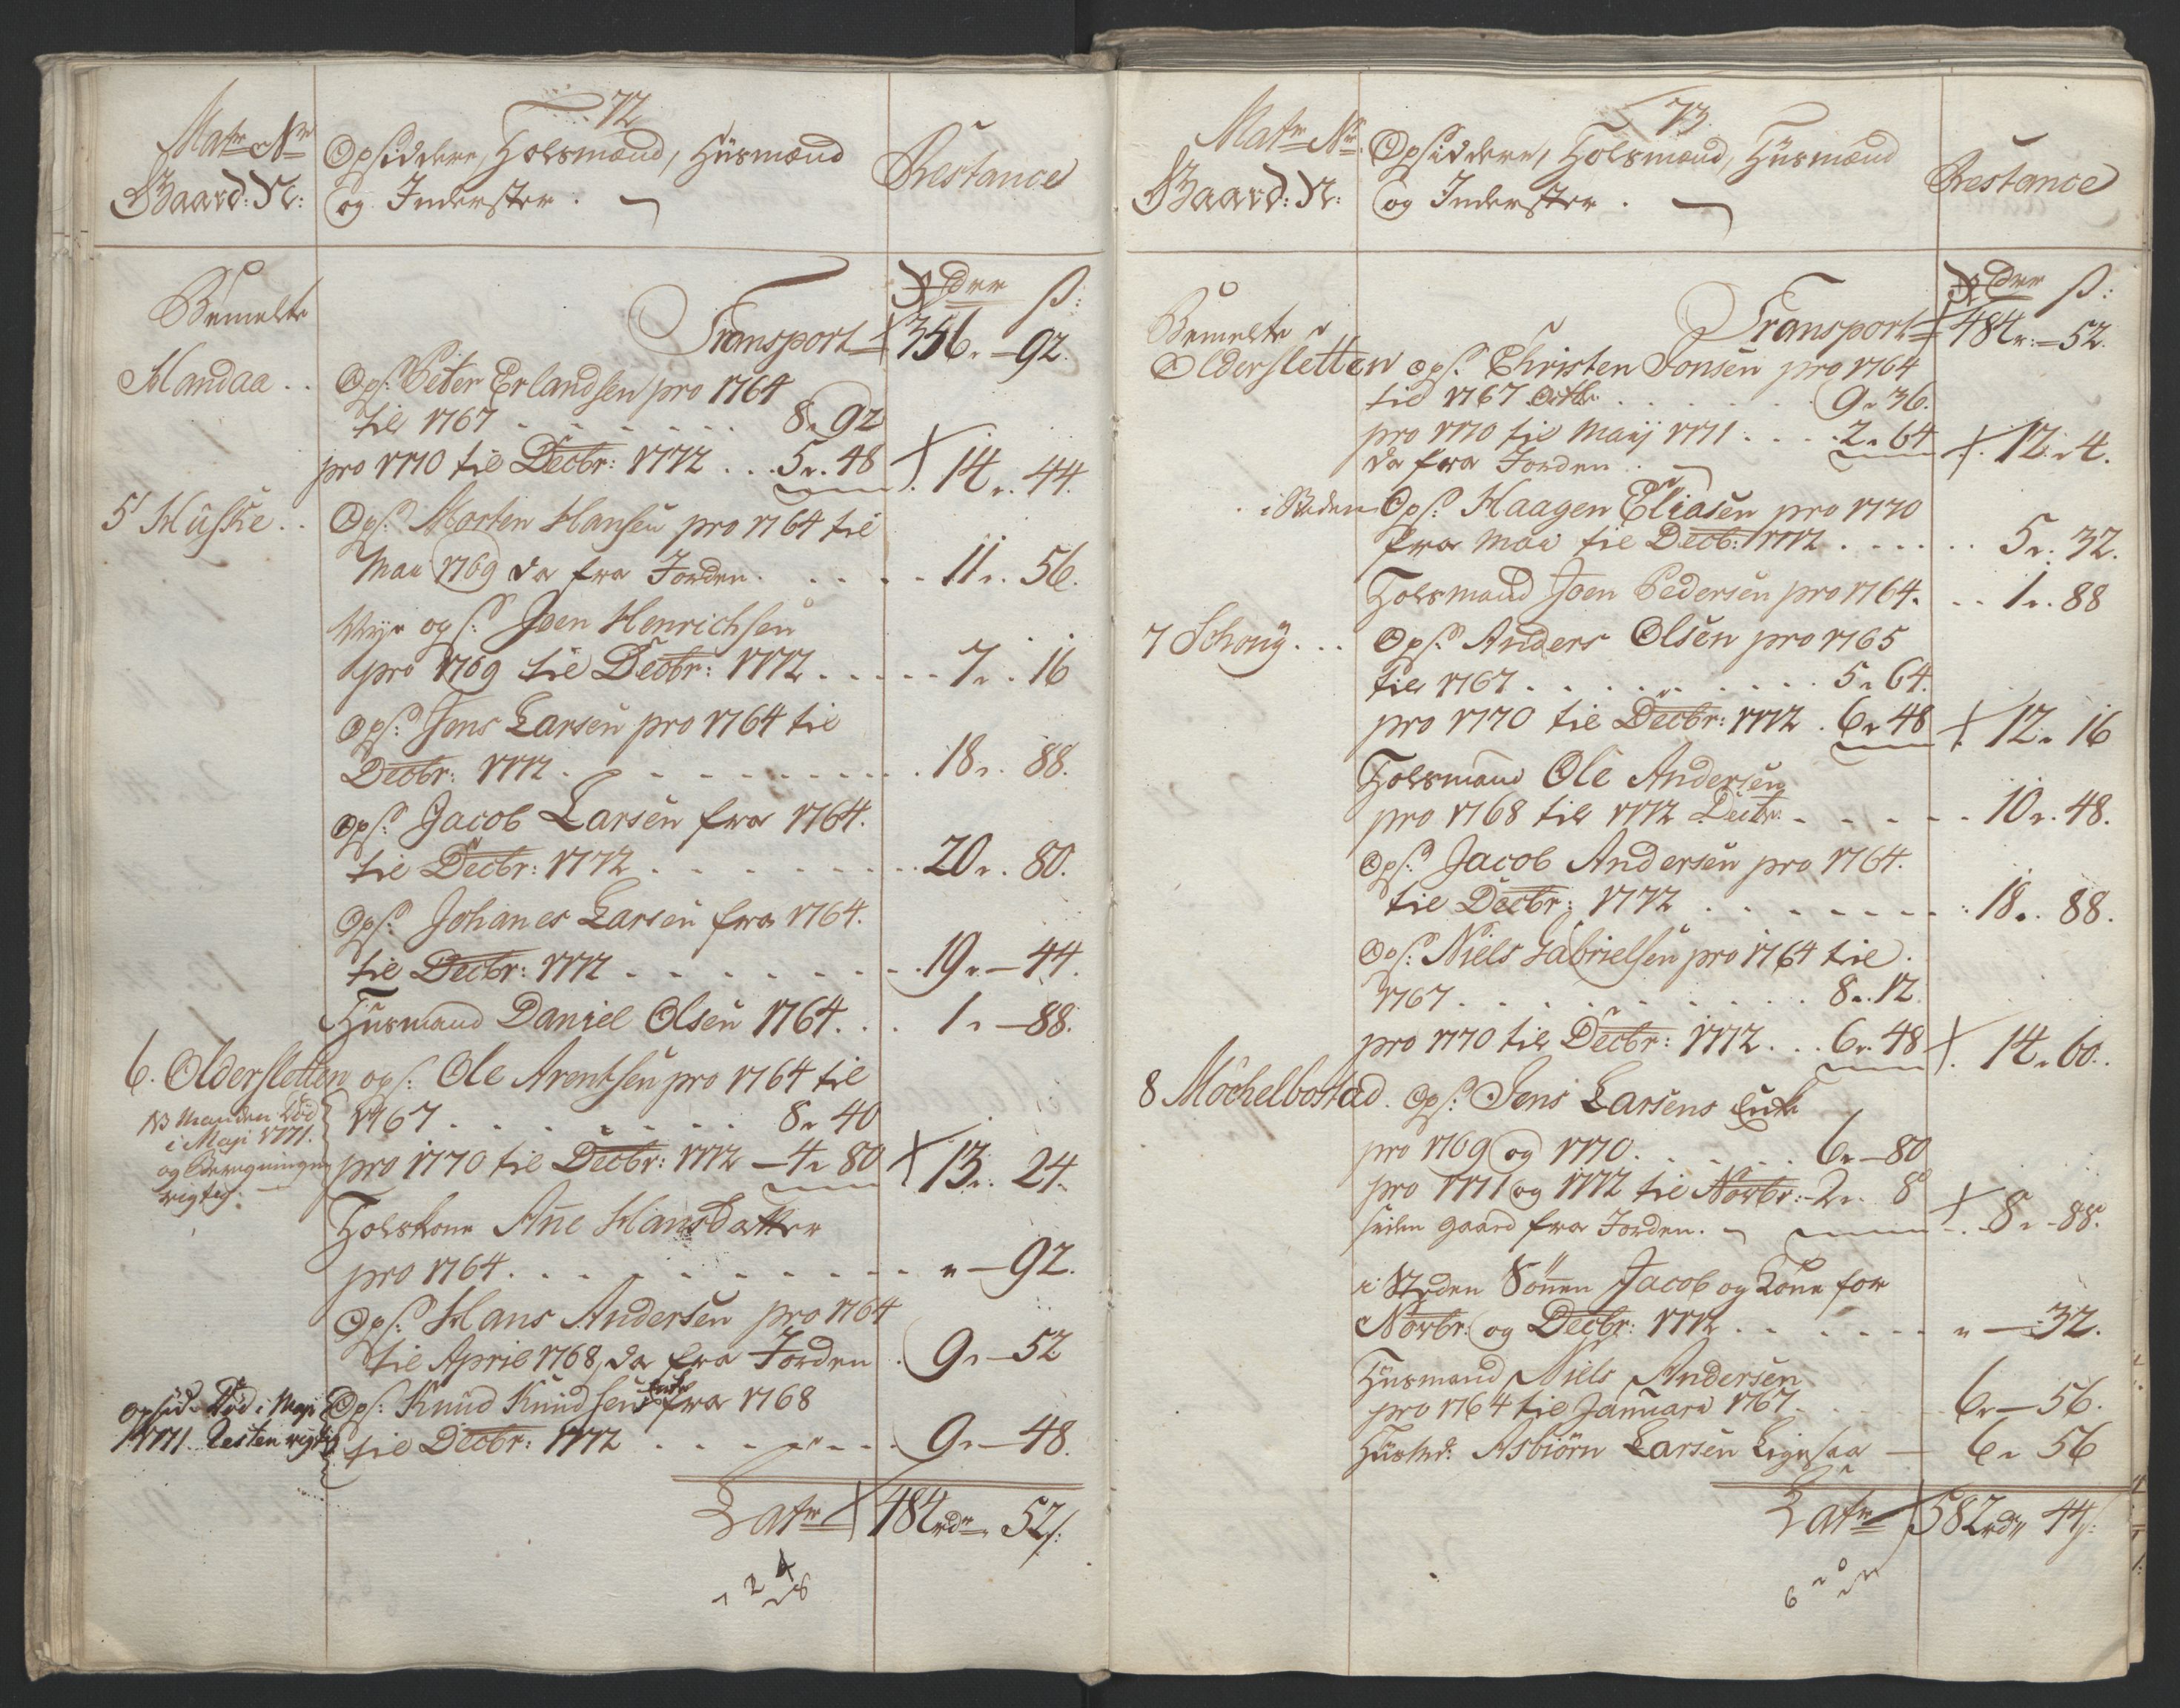 72.
Matr Nr
Gaard: N:
Opsiddere, Holsmænd, Hüsmænd
og Inderster.
Restance
Rdr ß:
Bemelte
Transport 356 „ – 92.
Mandaa . . Ops: Peter Erlandsen pro 1764
til 1767 . . . . . . 8 „ 92
pro 1770 til Decbr: 1772 . . . 5 „ 48 14 „ 44.
5 Müske . . Ops: Morten Hansen pro 1764 til
Mai 1769 da fra Jorden . . . . . 11 „ 56.
Nye ops: Joen Henrichsen
pro 1769 til Decbr: 1772 . . . . . 7 „ 16
Ops: Jens Larsen pro 1764 til
Decbr: 1772 . . . . . . . . . 18 „ 88.
Ops: Jacob Larsen fra 1764.
til Decbr: 1772 . . . . . . . 20 „ 80.
Ops: Johanes Larsen fra 1764.
til Decbr: 1772 . . . . . . . 19 „ – 44.
Hüsmand Daniel Olsen 1764 . . . 1 „ – 88.
6. Oldersletten ops: Ole Arentsen pro 1764 til
1767 . . . . . . . 8 „ 40
NB Manden Död
i Maji 1771.
og Beregningen
rigtig.
pro 1770 til Decbr: 1772 – 4 „ 80 13 „ 24.
Holskone Ane Hansdatter
pro 1764 . . . . . . . . . . „ – 92.
Ops: Hans Andersen pro 1764
til April 1768, da fra Jorden . 9 „ – 52
opsid. Död i Maji
1771. Resten rigtig
Ops: Knud Knudsens Enke fra 1768
til Decbr: 1772 . . . . . . . 9 „ – 48.
Latr 484 rdr „ 52 ß:
73.
Matr Nr
Gaard: N:
Opsiddere, Holsmænd, Hüsmænd
og Inderster.
Restance
Rdr ß:
Bemelte
Transport 484 „ – 52.
Oldersletten ops: Christen Jonsen pro 1764
til 1767 . . . . . . 9 „ 36.
pro 1770 til Maij 1771 . . . . 2 „ 64
da fra Jorden . 12 „ 4.
i Steden Ops: Haagen Eliasen pro 1770
fra Mai til Decb: 1772 . . . . . . 5 „ 32.
Holsmand Joen Pedersen pro 1764. . . 1 „ 88
7 Schong . . . Ops: Anders Olsen pro 1765
til 1767 . . . . . . . . . 5 „ 64.
pro 1770 til Decbr: 1772 . 6 „ 48 12 „ 16
Holsmand Ole Andersen
pro 1768 til 1772 Decbr. . . . . 10 „ 48.
Ops: Jacob Andersen pro 1764.
til Decbr: 1772 . . . . . . . . 18 „ 88.
Ops: Niels Gabrielsen pro 1764 til
1767 . . . . . . . . . . 8 „ 12.
pro 1770 til Decbr: 1772 . . . 6 „ 48 14 „ 60.
8 Möchelbostad. Ops: Jens Larsens Enke
pro 1769 og 1770 . . . . . . 6 „ – 80
pro 1771 og 1772 til Novbr: – 2 „ 8
siden gaard fra Jorden. 8 „ – 88.
i Steden Sönnen Jacob og Kone for
Novbr: og Decbr: 1772 . . . . . . „ – 32.
Hüsmand Niels Andersen
pro 1764 til Januari 1767. . . . 6 „ – 56.
Hüsmd: Asbiörn Larsen Ligesaa – 6 „ 56
Latr 582 rdr „ 44 ß: